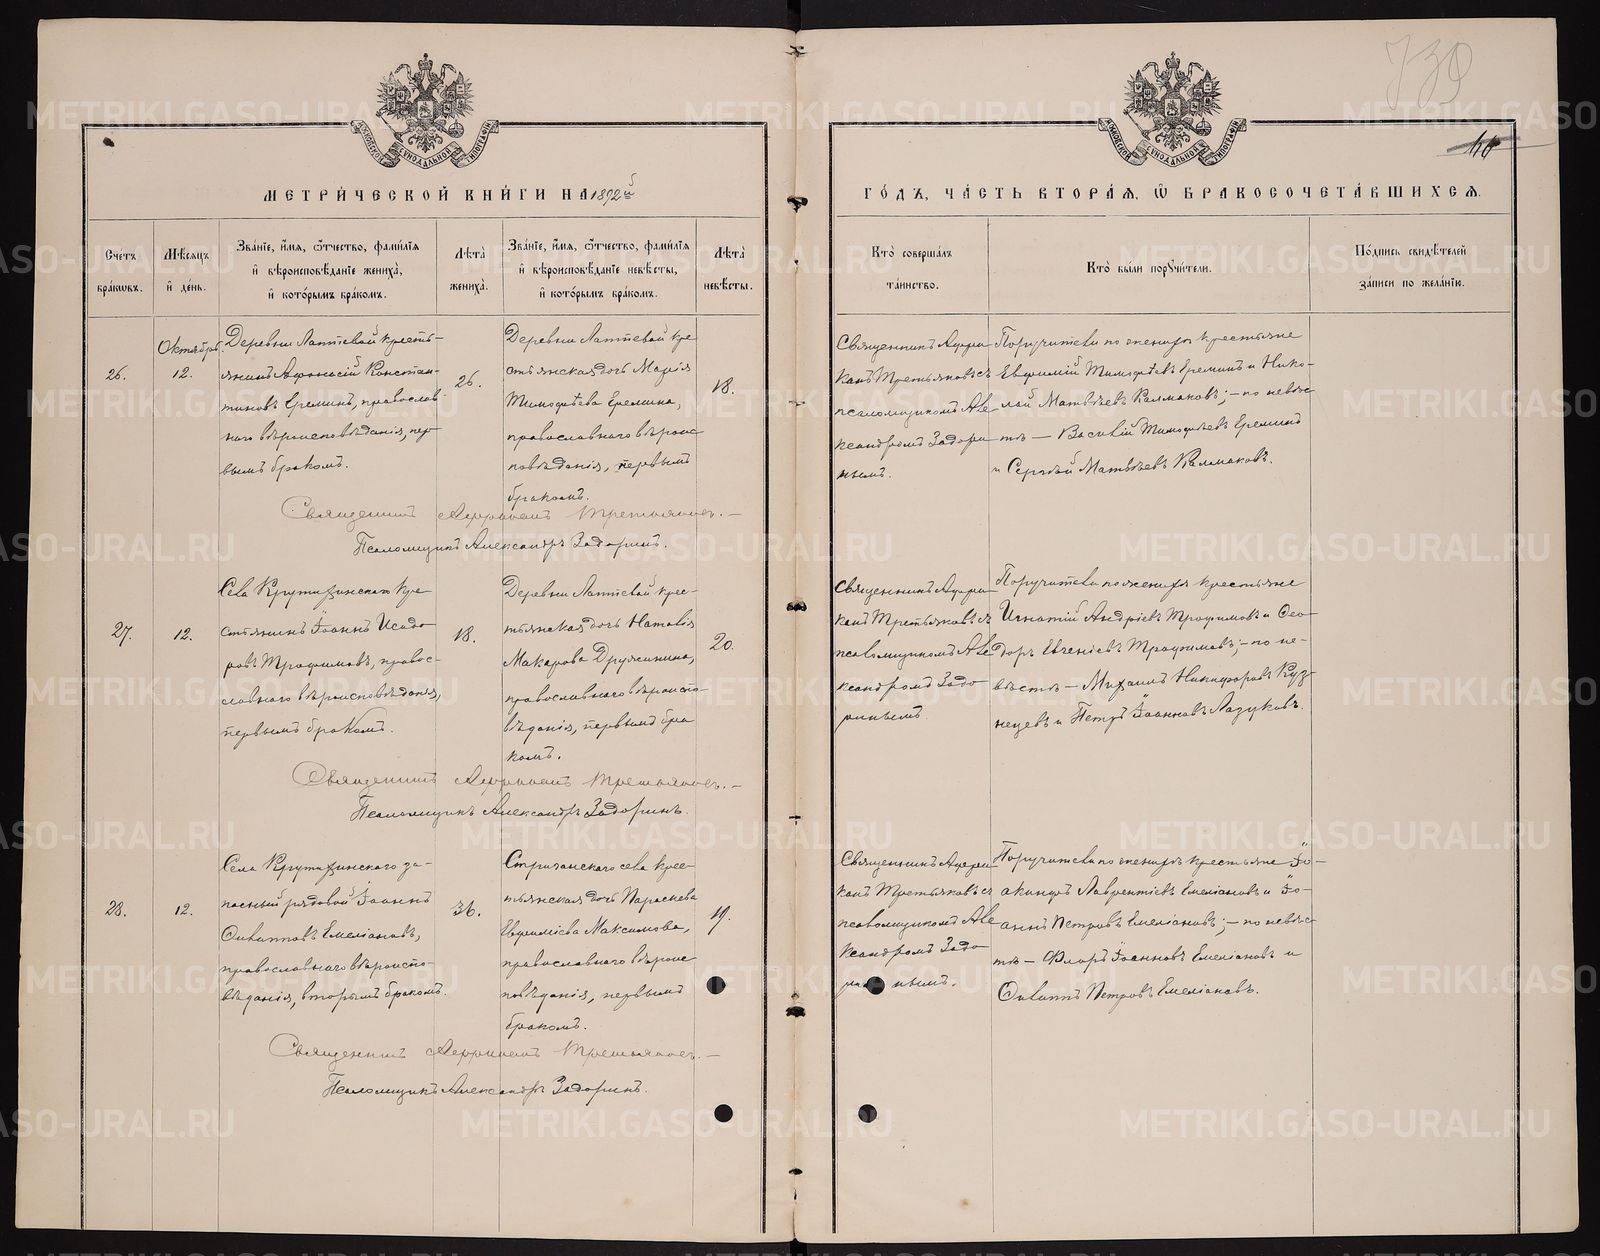 739
40
МОСКОВСКОЙ СѴНОДАЛЬНОЙ ТИПОГРАФІИ
МОСКОВСКОЙ СѴНОДАЛЬНОЙ ТИПОГРАФІИ
МЕТРИ́ЧЕСКОЙ КНИ́ГИ НА 1892й
ГО́ДЪ, ЧА́СТЬ ВТОРА́Я, Ѽ БРАКОСОЧЕТА́ВШИХСЯ.
Сче́тъ бра́кѡвъ.
Мѣ́сяцъ и҆ де́нь.
Зва́нїе, и҆́мя, ѻ҆́тчество, фами́лїя и҆ вѣроисповѣ́данїе жениха̀, и҆ кото́рымъ бра́комъ.
Лѣ́та жениха̀.
Зва́нїе, и҆́мя, ѻ҆́тчество, фами́лїя и҆ вѣроисповѣ́данїе невѣ́сты, и҆ кото́рымъ бра́комъ.
Лѣ́та невѣ́сты.
Кто̀ соверша́лъ та́инство.
Кто̀ бы́ли порꙋчи́тели.
По́дпись свидѣ́телей за́писи по жела́нїю.
26.
Октябрь
12.
Деревни Лаптевой кресть-
янинъ Афонасій Констан-
тиновъ Ереминъ, православ
наго вѣроисповѣданія, пер
вымъ бракомъ.
26.
Деревни Лаптевой кре
стьянская дочь Марія
Тимофѣева Еремина,
православнаго вѣроис
повѣданія, первымъ
бракомъ.
18.
Священникъ Афри
канъ Третьяковъ съ
псаломщикомъ Але
ксандромъ Задори
нымъ.
Поручители по женихѣ крестьяне
Евфимій Тимофѣевъ Ереминъ и Нико-
лай Матвѣевъ Калмаковъ; – по невѣс
тѣ – Василій Тимофѣевъ Ереминъ
и Сергѣй Матвѣевъ Калмаковъ.
Священникъ Африканъ Третьяковъ. –
Псаломщикъ Александръ Задоринъ.
27.
12.
Села Крутихинскаго кре
стьянинъ Іоаннъ Исидо
ровъ Трофимовъ, правос-
лавнаго вѣроисповѣданія,
первымъ бракомъ.
18.
Деревни Лаптевой крес-
тьянская дочь Наталія
Макарова Дружинина,
православнаго вѣроиспо-
вѣданія, первымъ бра
комъ.
20.
Священникъ Афри
канъ Третьяковъ съ
псаломщикомъ Але
ксандромъ Задо
ринымъ.
Поручители по женихѣ крестьяне
Игнатій Андріевъ Трофимовъ и Ѳео-
доръ Евгеніевъ Трофимовъ; – по не-
вѣстѣ – Михаилъ Никифоровъ Куз-
нецовъ и Петръ Іоанновъ Лазуковъ.
Священникъ Африканъ Третьяковъ. –
Псаломщикъ Александръ Задоринъ.
28.
12.
Села Крутихинскаго за-
пасный рядовой Іоаннъ
Филипповъ Емеліановъ,
православнаго вѣроиспо-
вѣданія, вторымъ бракомъ.
36.
Стриганскаго села крес-
тьянская дочь Параскева
Евфиміева Максимова,
православнаго вѣроис
повѣданія, первымъ
бракомъ.
19.
Священникъ Афри
канъ Третьяковъ съ
псаломщикомъ Але
ксандромъ Задо
ринымъ.
Поручители по женихѣ крестьяне Іо-
акимъ Лаврентіевъ Емеліановъ и Іо-
аннъ Петровъ Емеліановъ; – по невѣс
тѣ – Флоръ Іоанновъ Емеліановъ и
Филиппъ Петровъ Емеліановъ.
Священникъ Африканъ Третьяковъ. –
Псаломщикъ Александръ Задоринъ.
METRIKI.GASO-URAL.RU